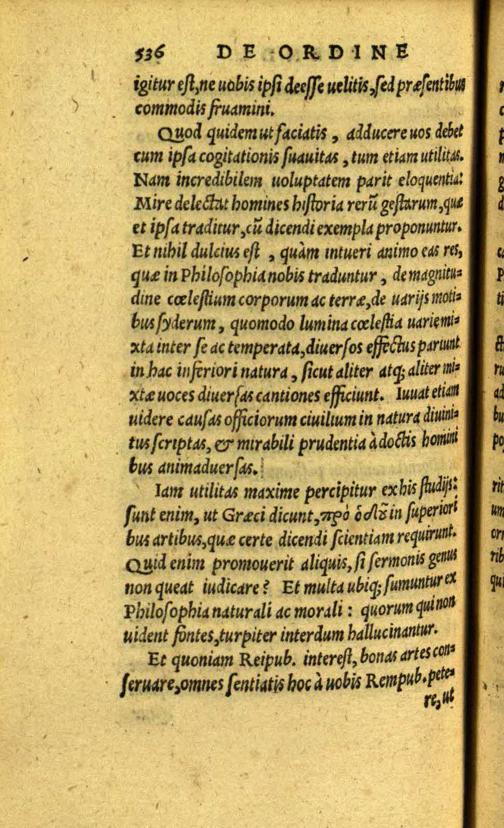 536 DE ORDINE
igitur est, ne uobis ipsi deesse uelitis, sed præsentibus
commodis fruamini.
Quod quidem ut faciatis, adducere uos debet
cum ipsa cogitationis suauitas, tum etiam utilitas.
Nam incredibilem uoluptatem parit eloquentia:
Mire delectat homines historia rerũ gestarum, quæ
et ipsa traditur, cũ dicendi exempla proponuntur.
Et nihil dulcius est, quàm intueri animo eas res,
quæ in Philosophia nobis traduntur, de magnitu=
dine cœlestium corporum ac terræ, de uarijs moti=
bus syderum, quomodo lumina cœlestia uarie mi=
xta inter se ac temperata, diuersos effectus pariunt
in hac inferiori natura, sicut aliter atq; aliter mi=
xtæ uoces diuersas cantiones efficiunt. Iuuat etiam
uidere causas officiorum ciuilium in natura diuini=
tus scriptas, & mirabili prudentia à doctis homini
bus animaduersas.
Iam utilitas maxime percipitur ex his studijs:
sunt enim, ut Græci dicunt, πρὸ ὁδοῦ in superiori
bus artibus, quæ certe dicendi scientiam requirunt.
Quid enim promouerit aliquis, si sermonis genus
non queat iudicare? Et multa ubiq; sumuntur ex
Philosophia naturali ac morali: quorum qui non
uident fontes, turpiter interdum hallucinantur.
Et quoniam Reipub. interest, bonas artes con=
seruare, omnes sentiatis hoc à uobis Rempub. pete=
re, ut